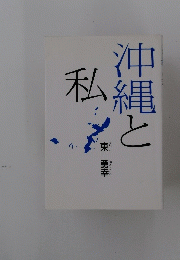 沖縄と
私
東 勇幸